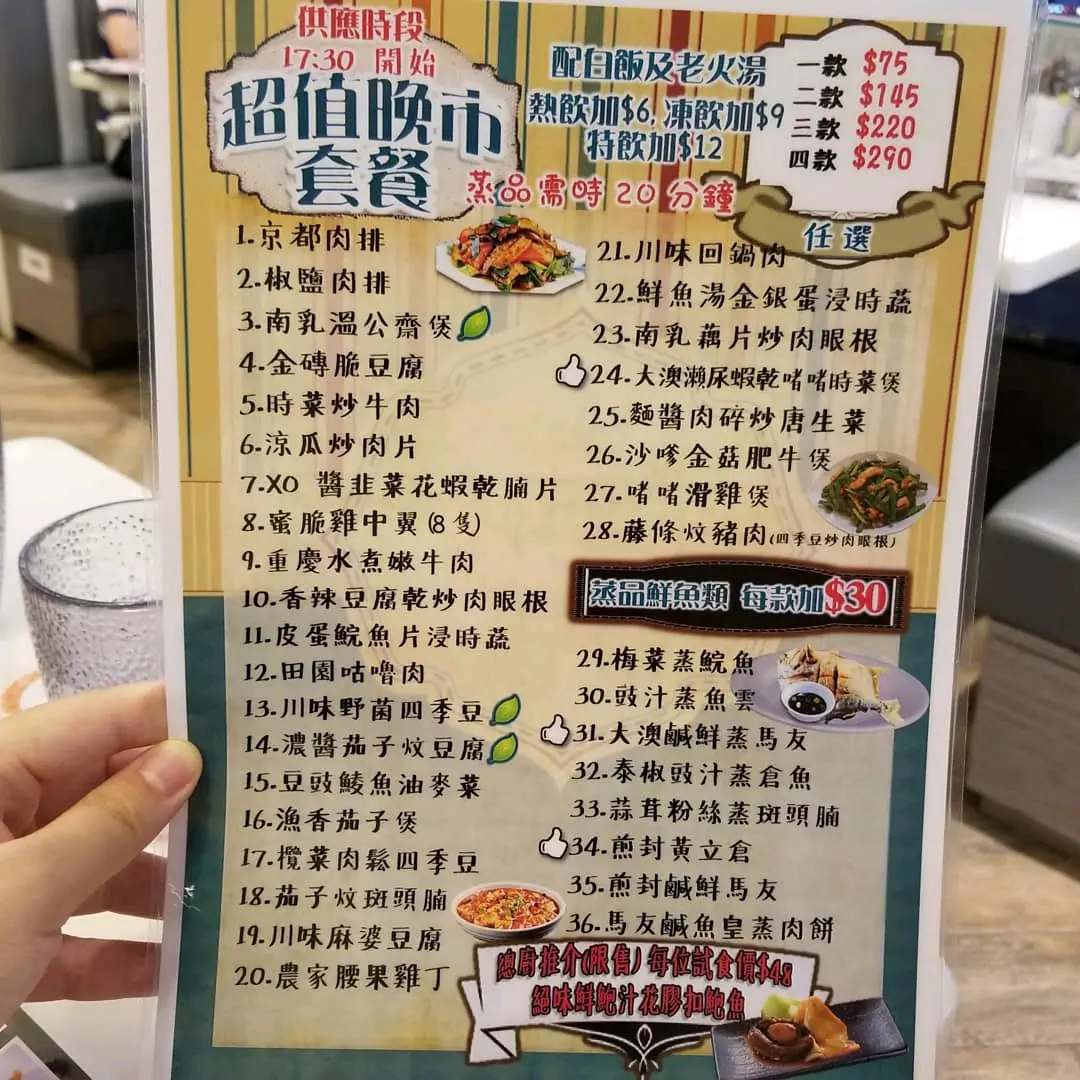 供應時段
17:30 開始
超值晚市
套餐
配白飯及老火湯
熱飲加$6, 凍飲加$9
特飲加$12
一款 $75
二款 $145
三款 $220
四款 $290
任選
蒸品需時20分鐘
1.京都肉排
2.椒鹽肉排
3.南乳溫公齋煲
4.金磚脆豆腐
5.時菜炒牛肉
6.涼瓜炒肉片
7.XO 醬韭菜花蝦乾腩片
8.蜜脆雞中翼(8隻)
9.重慶水煮嫩牛肉
10.香辣豆腐乾炒肉眼根
11.皮蛋鯇魚片浸時蔬
12.田園咕嚕肉
13.川味野菌四季豆
14.濃醬茄子炆豆腐
15.豆豉鯪魚油麥菜
16.漁香茄子煲
17.欖菜肉鬆四季豆
18.茄子炆斑頭腩
19.川味麻婆豆腐
20.農家腰果雞丁
21.川味回鍋肉
22.鮮魚湯金銀蛋浸時蔬
23.南乳藕片炒肉眼根
24.大澳瀨尿蝦乾啫啫時菜煲
25.麵醬肉碎炒唐生菜
26.沙嗲金菇肥牛煲
27.啫啫滑雞煲
28.藤條炆豬肉(四季豆炒肉眼根)
蒸品鮮魚類 每款加$30
29.梅菜蒸鯇魚
30.豉汁蒸魚雲
31.大澳鹹鮮蒸馬友
32.泰椒豉汁蒸倉魚
33.蒜茸粉絲蒸斑頭腩
34.煎封黃立倉
35.煎封鹹鮮馬友
36.馬友鹹魚皇蒸肉餅
總廚推介(限售) 每位試食價$48
絕味鮮鮑汁花膠扣鮑魚